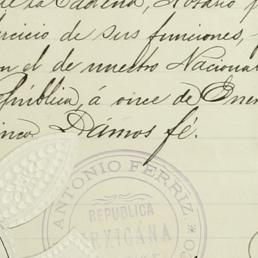 de la Cadena, Notario p
ercicio de sus funciones,
on el de nuestro Naciona
epública, á once de Ener
inco. Dámos fé.
ANTONIO FERRIZ
REPUBLICA
MEXICANA